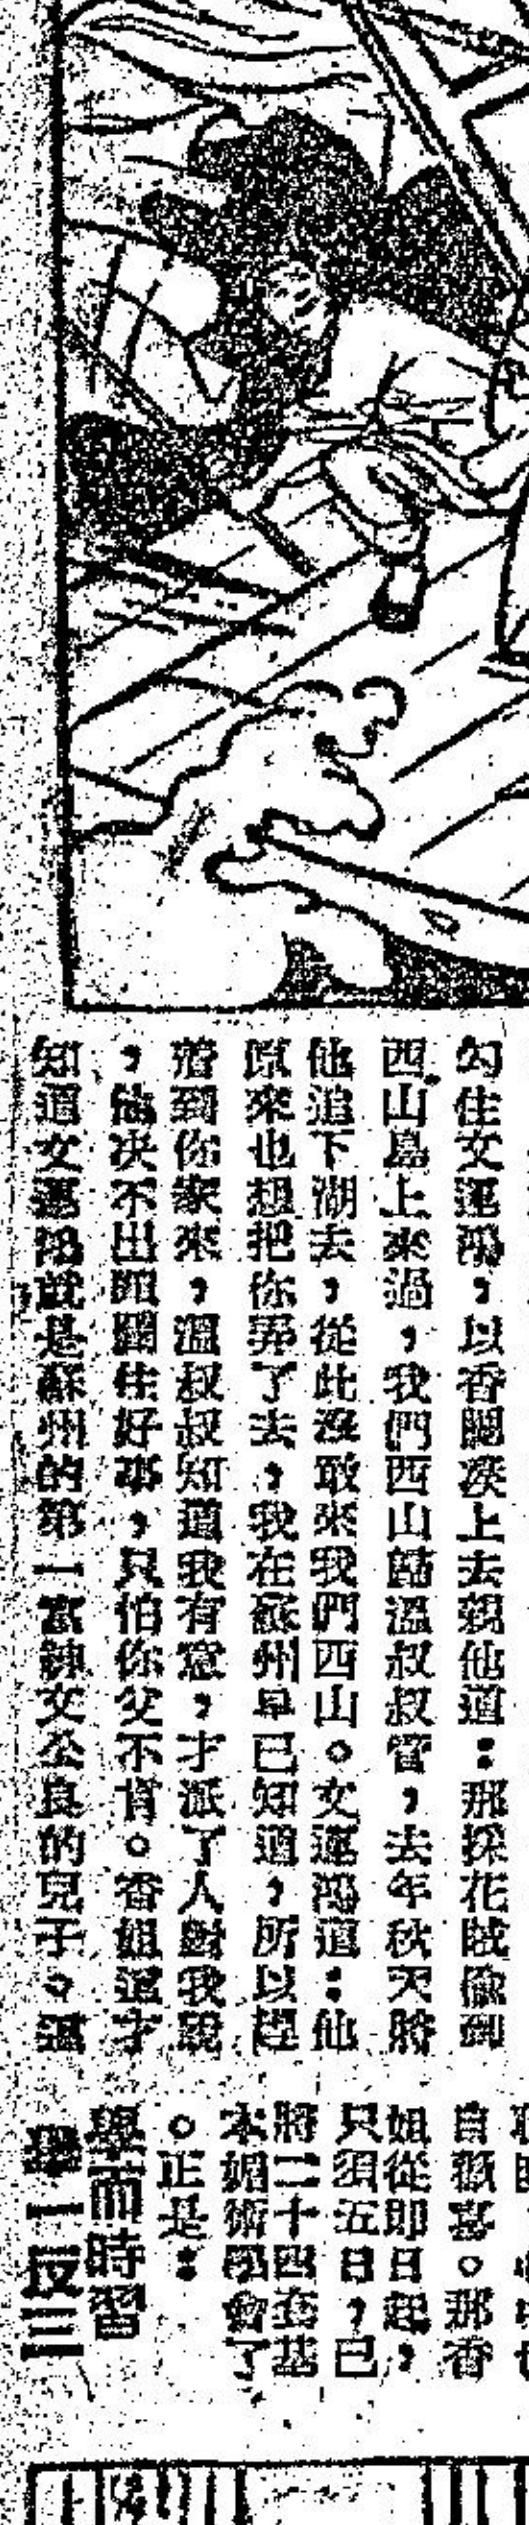 勾住文運鴻，以香腮湊上去親他道：那採花賊偸到
西山島上來過，我們西山歸溫叔叔管，去年秋天將
他追下湖去，從此沒敢來我們西山。文運鴻道：他
原來也想把你弄了去，我在蘇州早已知道，所以趕
着到你家來，溫叔叔知道我有意，才派了人對我說
，他决不出頭關住好事，只怕你父不肯。香姐道才
知道文運鴻就是蘇州的第一富紳文公良的兒子。這
自歡喜。那香
姐從即日起，
只須五日，已
將二十四套基
本媚術學會了
。正是：
學而時習
舉一反三